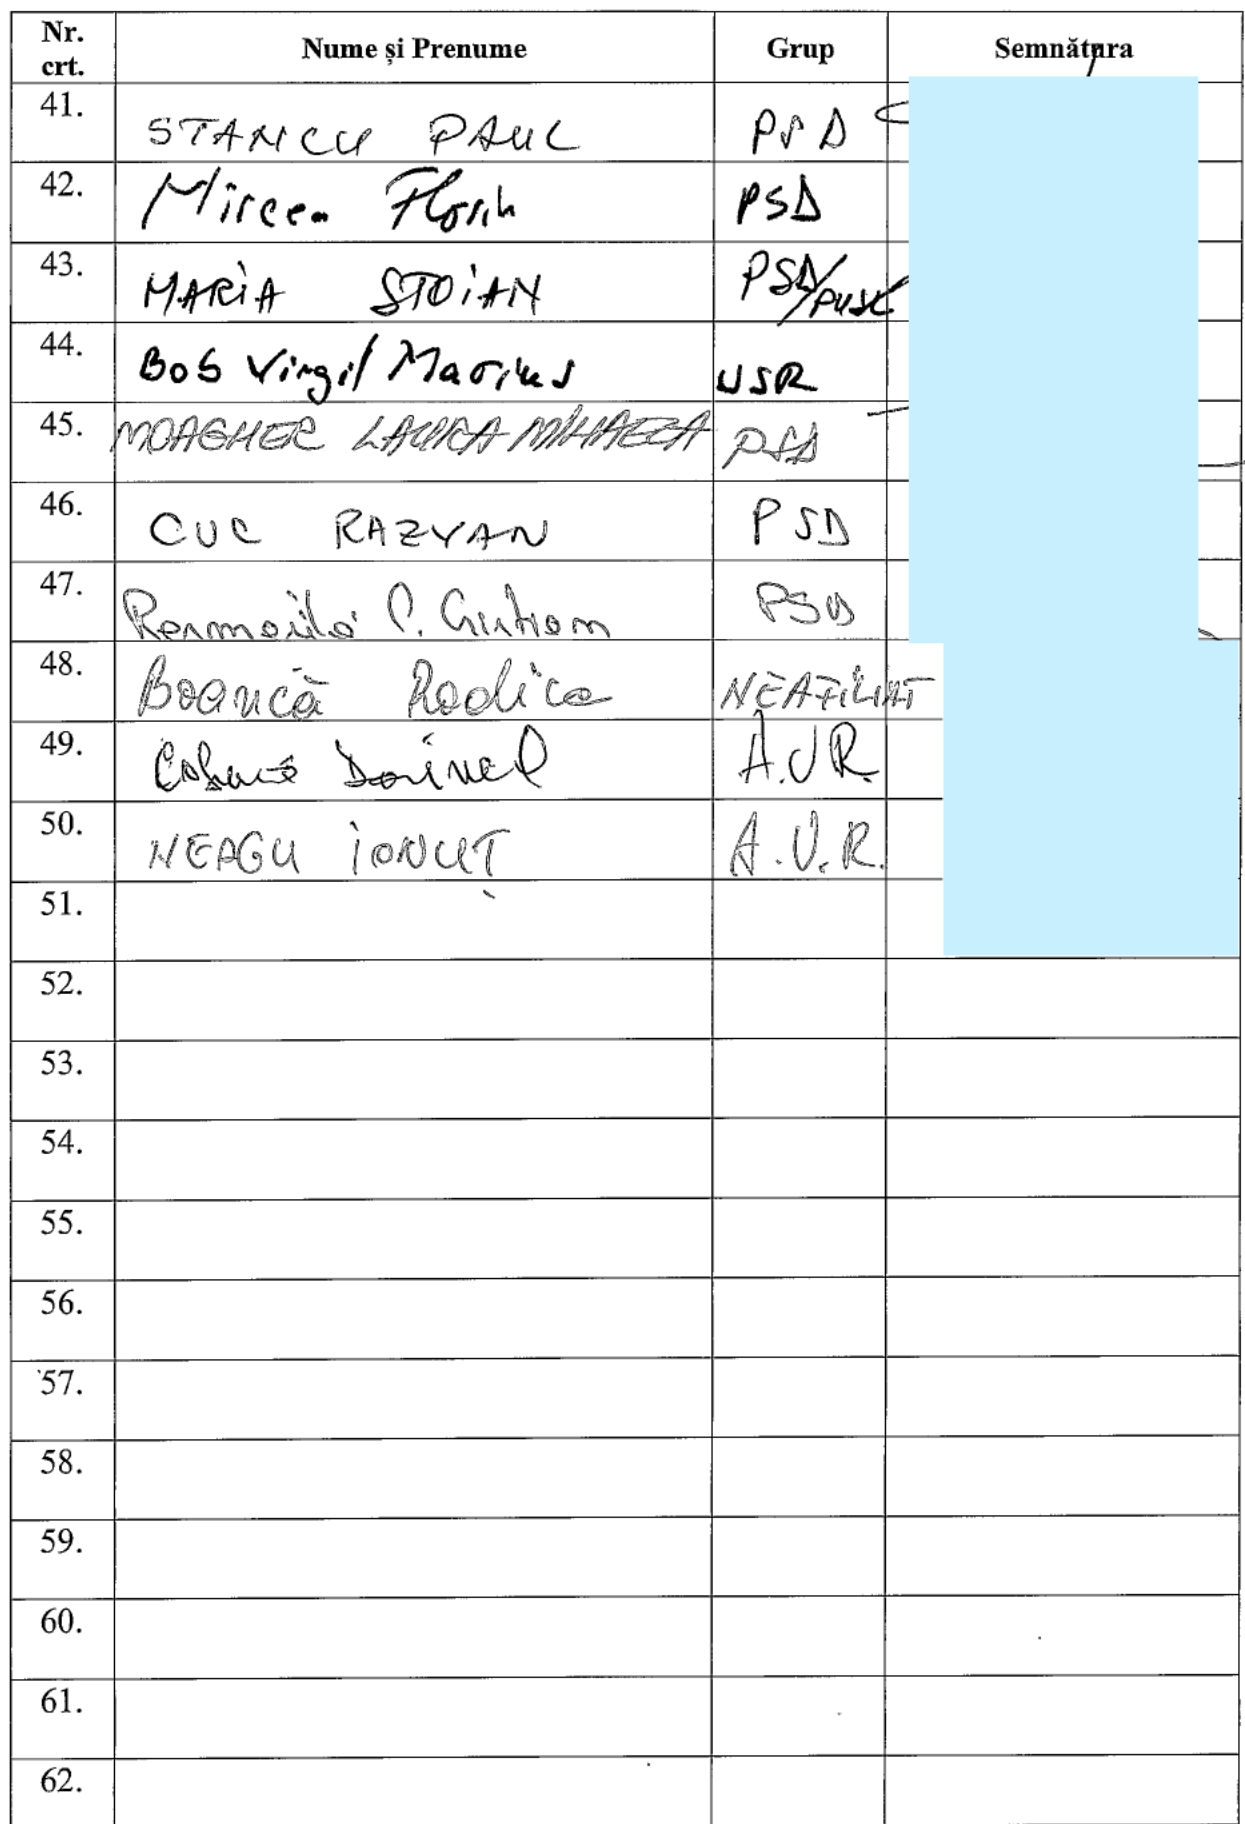 Nr. crt. Nume și Prenume Grup Semnătura
41. STANCU PAUL PSD
42. Mircea Florin PSD
43. MARIA STOIAN PSD/PUSL
44. Bob Virgil Marius USR
45. MOAGHER LAURA MIHAELA PSD
46. CUC RAZVAN PSD
47. C. PSD
48. Boancă Rodica NEAFILIAT
49. Dorinel A.U.R.
50. NEAGU IONUȚ A.U.R.
51.
52.
53.
54.
55.
56.
57.
58.
59.
60.
61.
62.